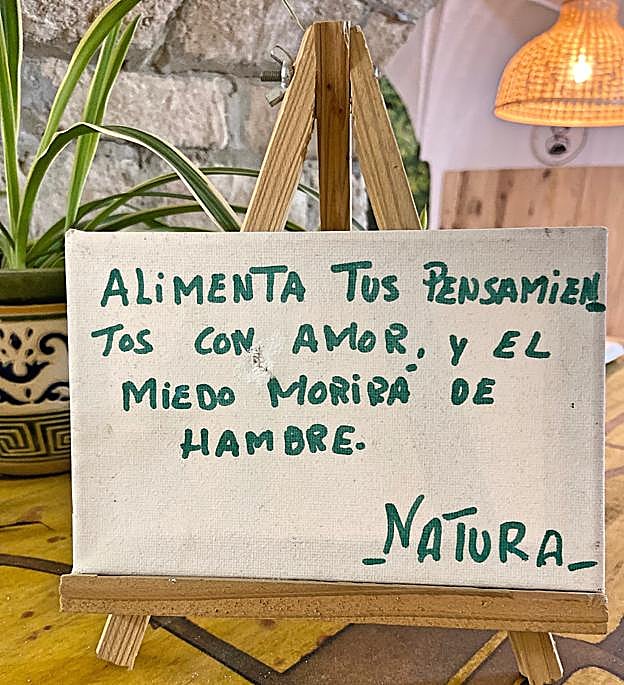 ALiMENTA TUS PENSAMiEN
TOS CON AMOR, y EL
MiEDO MORiRÁ DE
HAMBRE.
_NATURA_